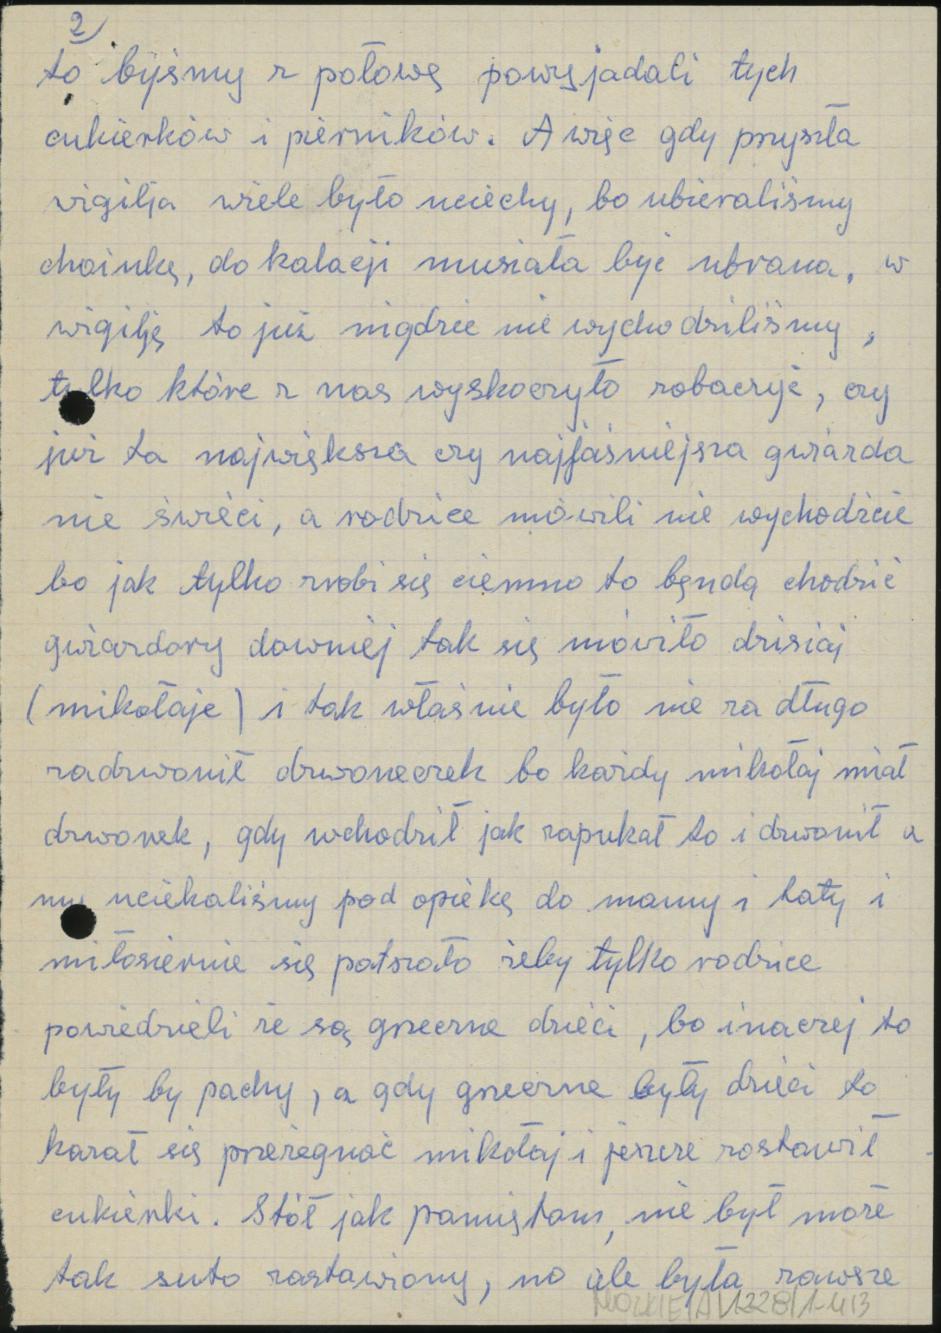 2
to byśmy z połowę powyjadali tych
cukierków i pierników. A więc gdy przyszła
wigilja wiele było uciechy, bo ubieraliśmy
choinkę, do kolacji musiała być ubrana, w
wigilję to już nigdzie nie wychodziliśmy,
tylko które z nas wyskoczyło zobaczyć, czy
już ta największa czy najjaśniejsza gwiazda
nie świeci, a rodzice mówili nie wychodźcie
bo jak tylko zrobi się ciemno to będą chodzić
gwiazdory dawniej tak się mówiło dzisiaj
(mikołaje) i tak właśnie było nie za długo
zadzwonił dzwoneczek bo każdy mikołaj miał
dzwonek, gdy wchodził jak zapukał to i dzwonił a
my uciekaliśmy pod opiekę do mamy i taty i
miłosiernie się patrzało żeby tylko rodzice
powiedzieli że są grzeczne dzieci, bo inaczej to
były by pachy, a gdy grzeczne były dzieci to
kazał się przeżegnać mikołaj i jeszcze zostawił
cukierki. Stół jak pamiętam, nie był może
tak suto zastawiony, no ale była zawsze
/A/1228/1-4/3